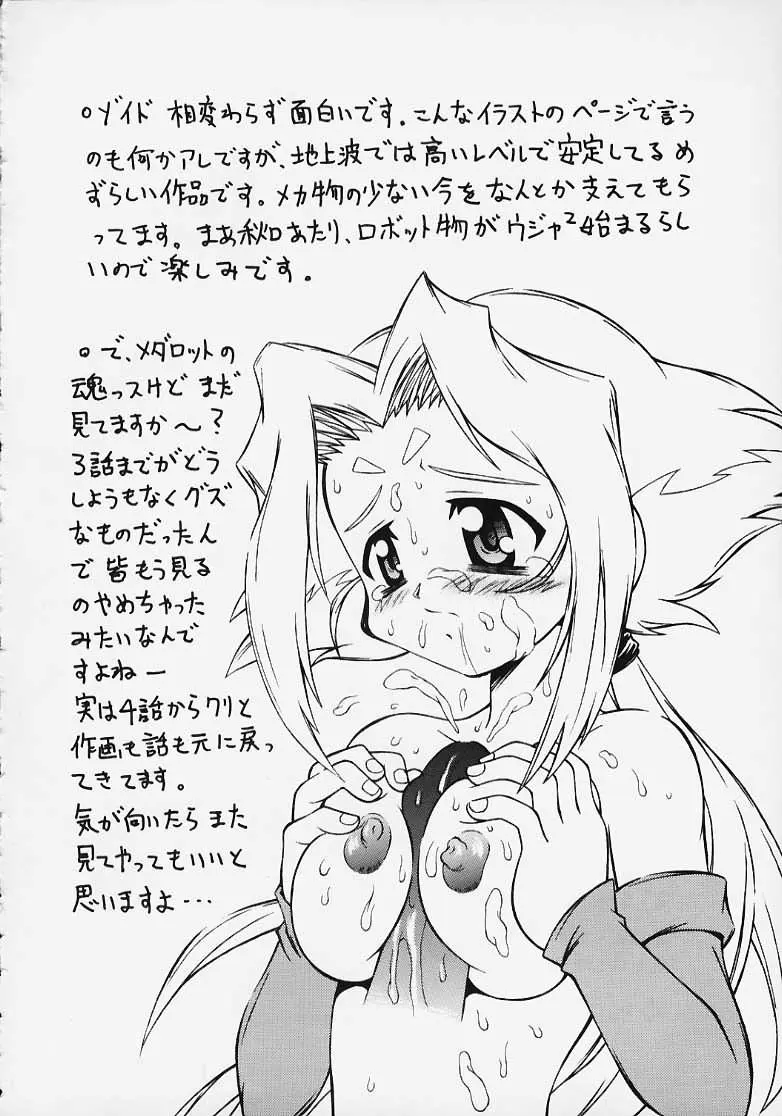 ○ゾイド 相変わらず面白いです。こんなイラストのページで言う
のも何かアレですが、地上波では高いレベルで安定してるめ
ずらしい作品です。メカ物の少ない今をなんとか支えてもら
ってます。まあ秋口あたり、ロボット物がウジャ²始まるらし
いので楽しみです。
○で、メダロットの
魂っスけど まだ
見てますか〜?
3話までがどう
しようもなくグズ
なものだったん
で皆もう見る
のやめちゃった
みたいなんで
すよねー
実は4話からクリと
作画も話も元に戻っ
てきてます。
気が向いたらまた
見てやってもいいと
思いますよ…